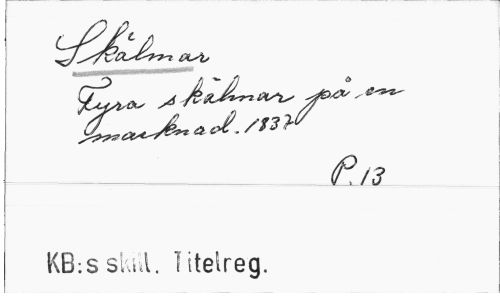 Skälmar
Fyra skälmar på en
marknad. 1837
P. 13
KB:s skill. Titelreg.